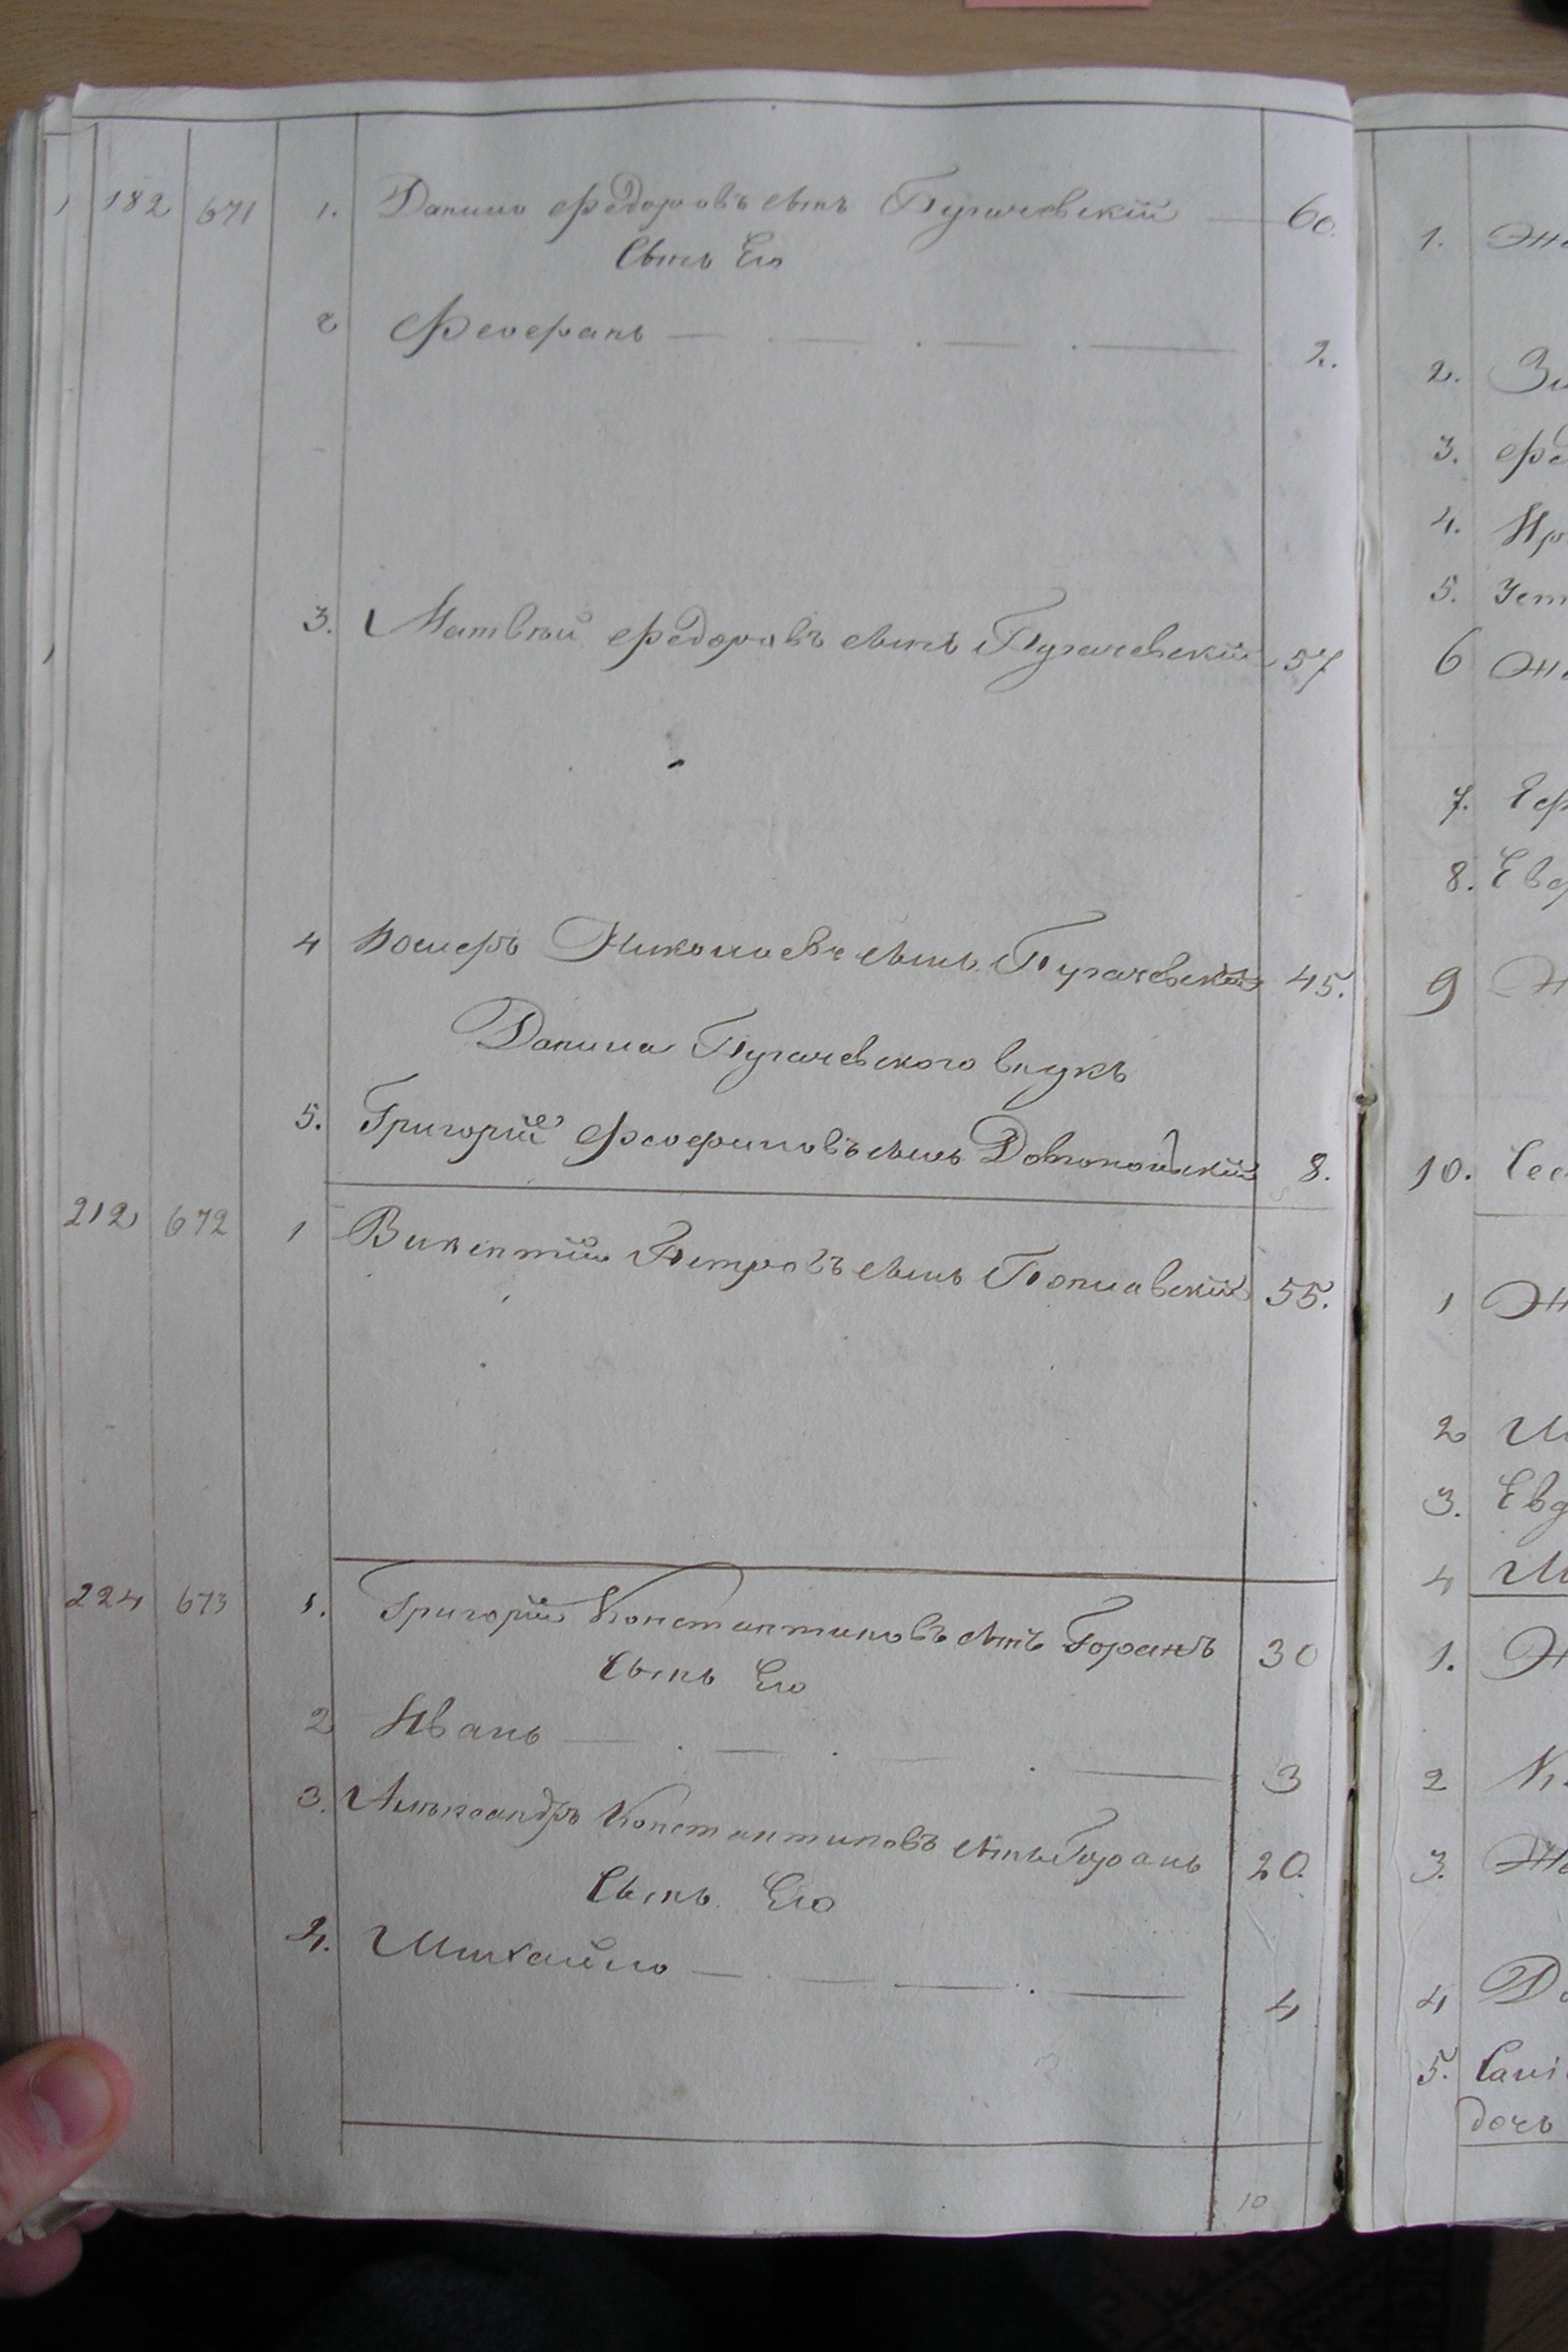 1 182 671 1. Данило Федоровъ сынъ Пугачевскій 60.
Сынъ Его
2 Феофанъ 2.
3. Матвѣй Федоровъ сынъ Пугачевскій 57
4 Николаевъ сынъ Пугачевскій 45.
Данила Пугачевского внукъ
5. Григорій сынъ 8.
212 672 1 Викентій Петровъ сынъ Поплавскій 55.
224 673 1. Григорій Константиновъ сынъ Горанъ 30
Сынъ Его
2 Иванъ 3
3. Александръ Константиновъ сынъ Горанъ 20.
Сынъ Его
4. Михайло 4
10
1.
2.
3.
4.
5.
6
7.
8.
9
10.
1
2
3.
4
1.
2
3.
4
5.
дочь